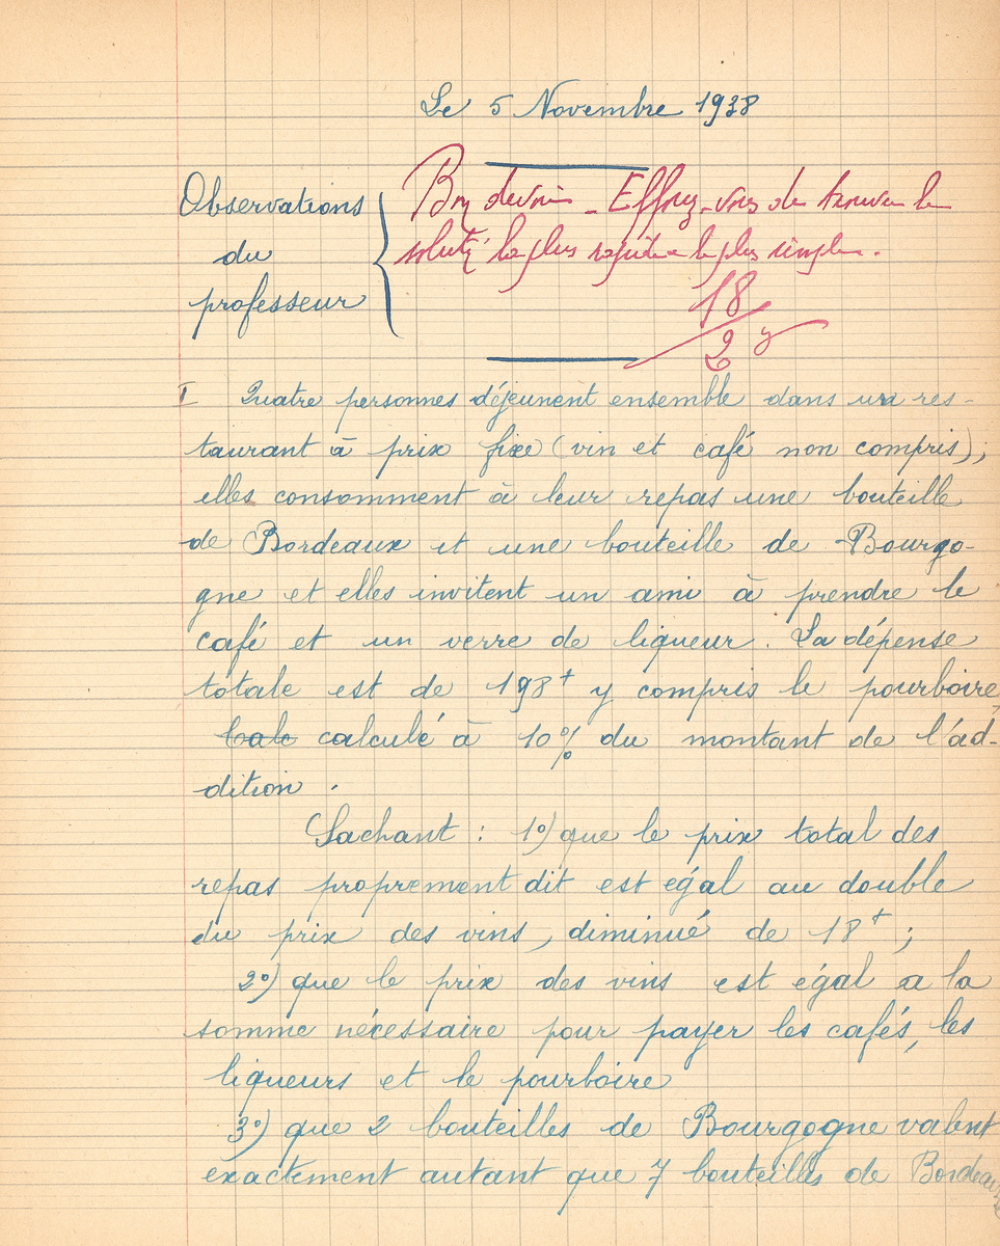 Le 5 Novembre 1938
Observations
du
professeur
Bon devoir - Efforcez-vous de trouver la
solut° la plus rapide et la plus simple.
18
2
I Quatre personnes déjeunent ensemble dans un res-
taurant à prix fixe (vin et café non compris);
elles consomment à leur repas une bouteille
de Bordeaux et une bouteille de Bourgo-
gne et elles invitent un ami à prendre le
café et un verre de liqueur. La dépense
totale est de 198f y compris le pourboire,
calculé à 10% du montant de l'ad-
dition.
Sachant : 1°) que le prix total des
repas proprement dit est égal au double
du prix des vins, diminué de 18f ;
2°) que le prix des vins est égal a la
somme nécessaire pour payer les cafés, les
liqueurs et le pourboire
3°) que 2 bouteilles de Bourgogne valent
exactement autant que 7 bouteilles de Bordeaux